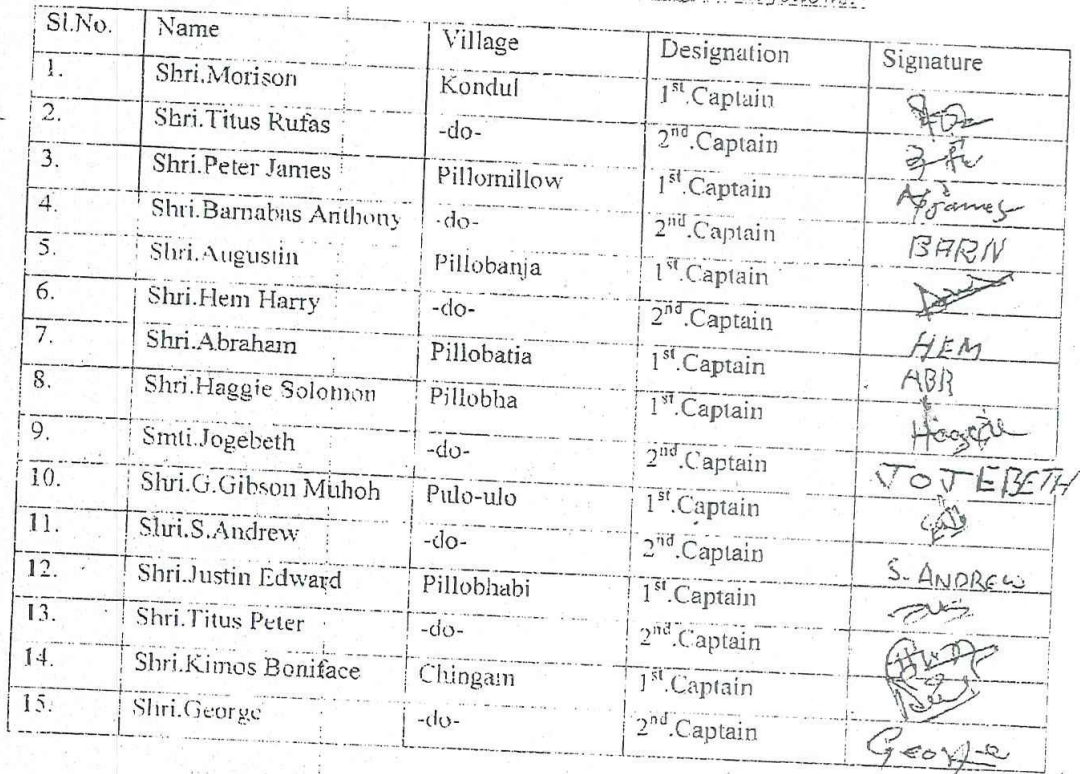 Sl.No. Name Village Designation Signature
1. Shri.Morison Kondul 1st.Captain
2. Shri.Titus Rufas -do- 2nd.Captain
3. Shri.Peter James Pillomillow 1st.Captain
4. Shri.Barnabas Anthony -do- 2nd.Captain BARN
5. Shri.Augustin Pillobanja 1st.Captain
6. Shri.Hem Harry -do- 2nd.Captain HEM
7. Shri.Abraham Pillobatia 1st.Captain ABR
8. Shri.Haggie Solomon Pillobha 1st.Captain
9. Smti.Jogebeth -do- 2nd.Captain JOJEBETH
10. Shri.G.Gibson Muhoh Pulo-ulo 1st.Captain
11. Shri.S.Andrew -do- 2nd.Captain S. ANDREW
12. Shri.Justin Edward Pillobhabi 1st.Captain
13. Shri.Titus Peter -do- 2nd.Captain
14. Shri.Kimos Boniface Chingam 1st.Captain
15. Shri.George -do- 2nd.Captain George